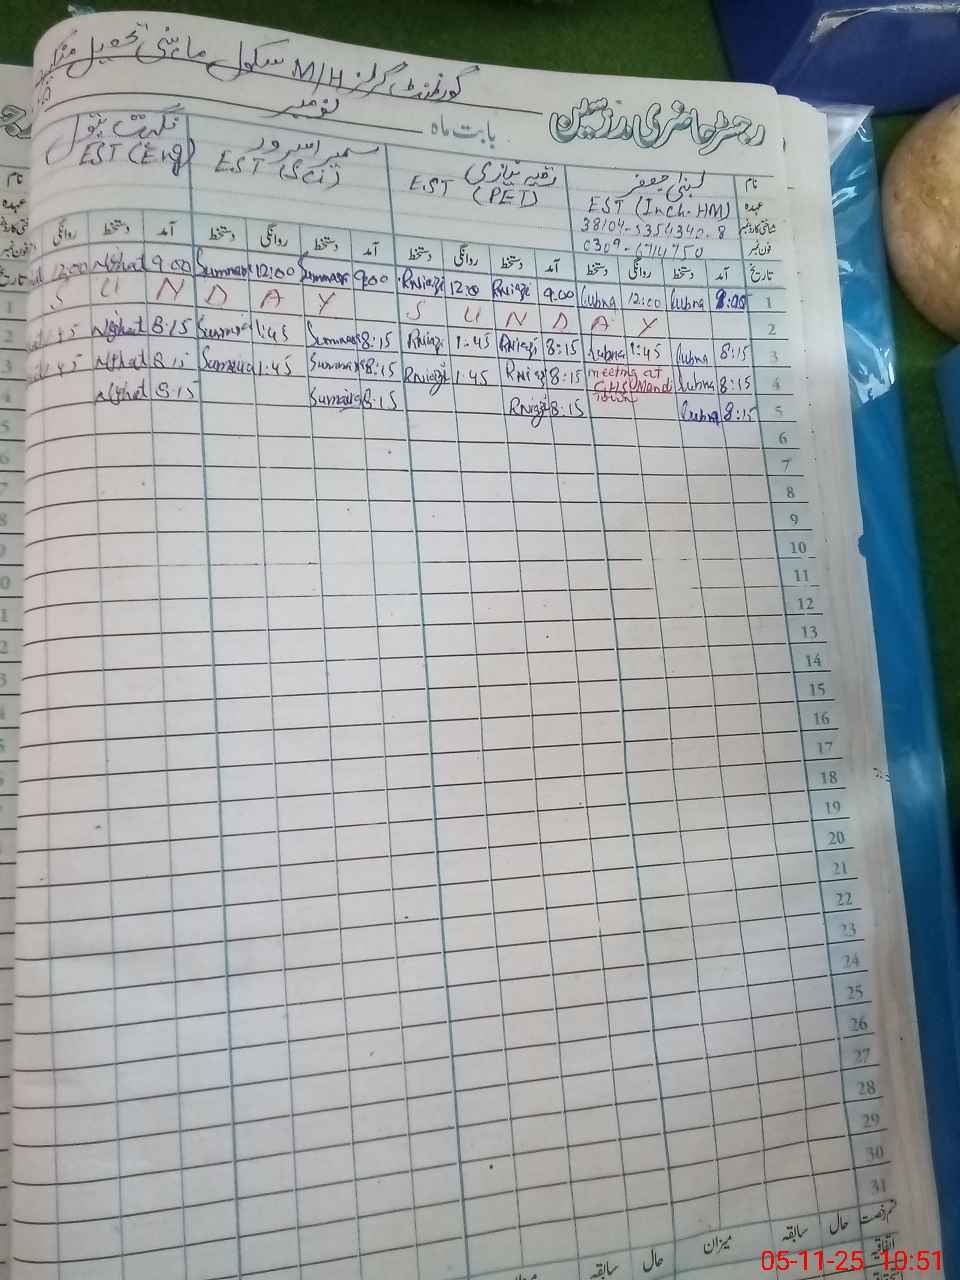 گورنمنٹ گرلز M/H سکول ماہنی تحصیل
رجسٹر حاضری مدرسین بابت ماہ نومبر
نام لبنیٰ جعفر رقیہ نیازی سمیرا سرور نگہت بتول
عہدہ EST (Inch. HM) EST (PET) EST (Sci) EST (Eng)
شناختی کارڈ نمبر 38104-5354340-8
فون نمبر 0309-6714750
تاریخ آمد دستخط روانگی دستخط آمد دستخط روانگی دستخط آمد دستخط روانگی دستخط آمد دستخط روانگی
1 8:00 Lubna 12:00 Lubna 9:00 RNiazi 12:00 RNiazi 9:00 Summaira 12:00 Summaira 9:00 Nighat 12:00
2 S U N D A Y S U N D A Y
3 8:15 Lubna 1:45 Lubna 8:15 RNiazi 1:45 RNiazi 8:15 Summaira 1:45 Summaira 8:15 Nighat 1:45
4 8:15 Lubna meeting at GHS Mandi Town 8:15 RNiazi 1:45 RNiazi 8:15 Summaira 1:45 Sumaira 8:15 Nighat 1:45
5 8:15 Lubna 8:15 RNiazi 8:15 Sumaira 8:15 Nighat
6
7
8
9
10
11
12
13
14
15
16
17
18
19
20
21
22
23
24
25
26
27
28
29
30
31
قسم رخصت حال سابقہ میزان حال سابقہ میزان
اتفاقیہ
05-11-25 10:51